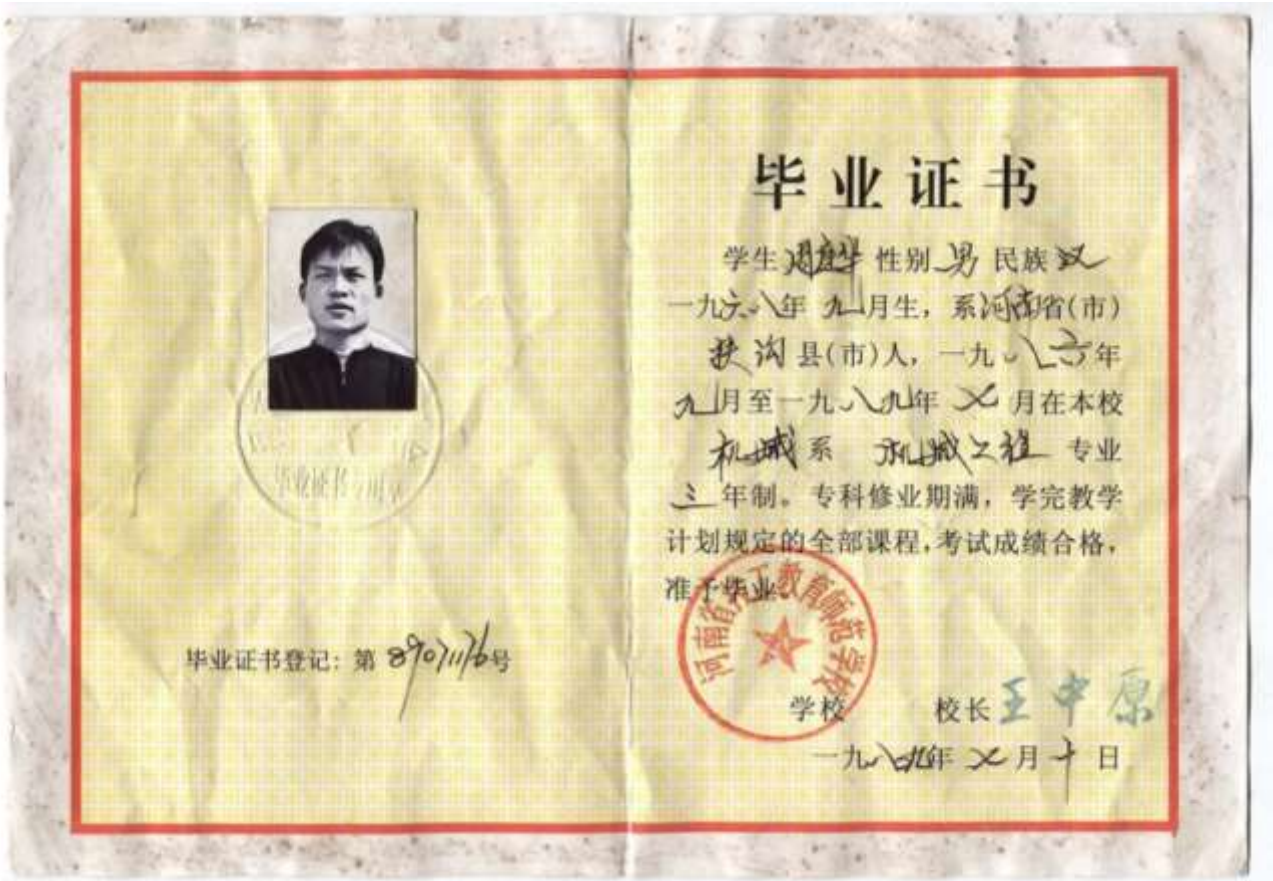 毕业证书登记：第89071176号
毕业证书
学生 周庭华 性别 男 民族 汉
一九六八年 九月生，系河南省(市)
扶沟县(市)人，一九八六年
九月至一九八九年 七 月在本校
机械系 机械工程 专业
三年制。专科修业期满，学完教学
计划规定的全部课程,考试成绩合格，
准予毕业。
河南省 教育师范学校
学校 校长 王中原
一九八九年 七 月 十 日
毕业证书专用章